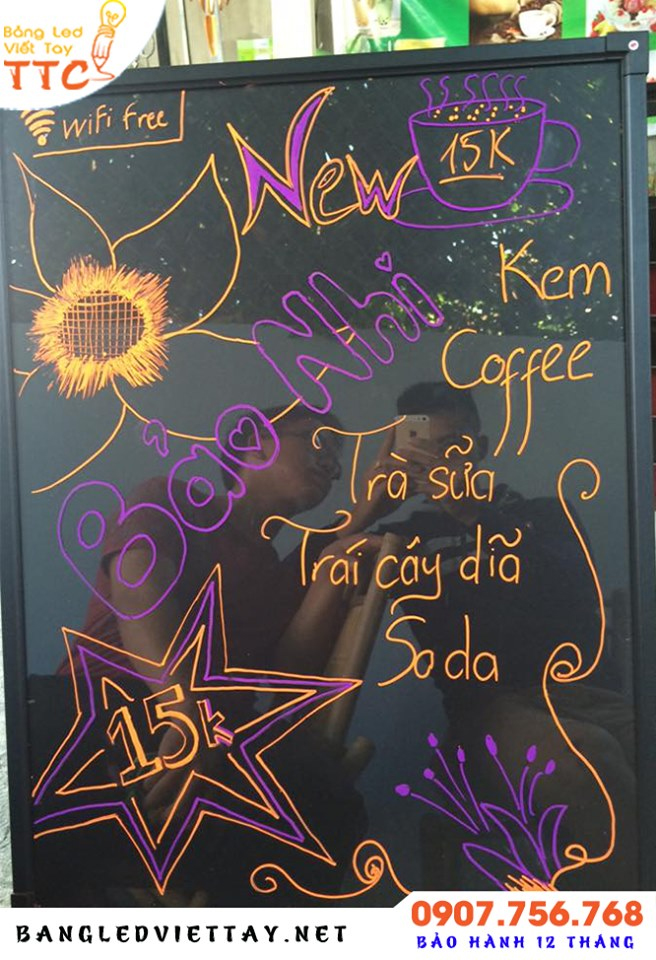 Bảng Led
Viết Tay
TTC
WiFi free
New
15K
Kem
Bảo Nhi
Coffee
Trà sữa
Trái cây dĩã
Soda
15k
0907.756.768
BANGLEDVIETTAY.NET
BẢO HÀNH 12 THÁNG